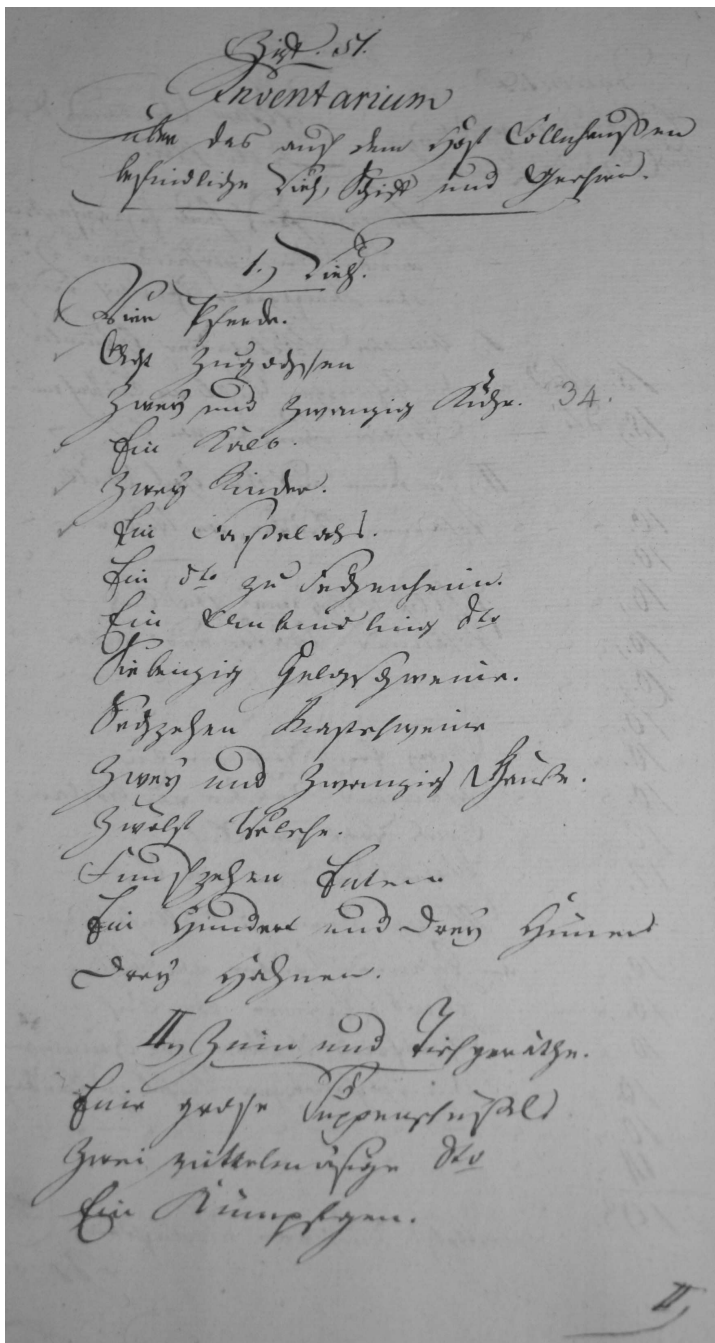 Inventarium
über das auf dem Hof Cöllnhaußen
befindliche Vieh, Schiff und Geschirr.
1.) Vieh.
Vier Pferde.
Acht Zugochsen
Zwey und Zwanzig Kühe. 34.
Ein Kalb.
Zwey Rinder.
Ein Faßelochs.
Ein dto zu Fechenheim.
Ein dto
Siebenzig Gelgschweine.
Sechzehen Mastschweine
Zwey und Zwanzig Gänße.
Zwölf Welsche.
Funfzehen Enten
Ein Hundert und Drey Hüner
Drey Hahnen.
II.) Zinn und Tischgeräthe.
Eine große Suppenschüßel
Zwei mittelmäsige dto
Ein Kümpfgen.
II.)